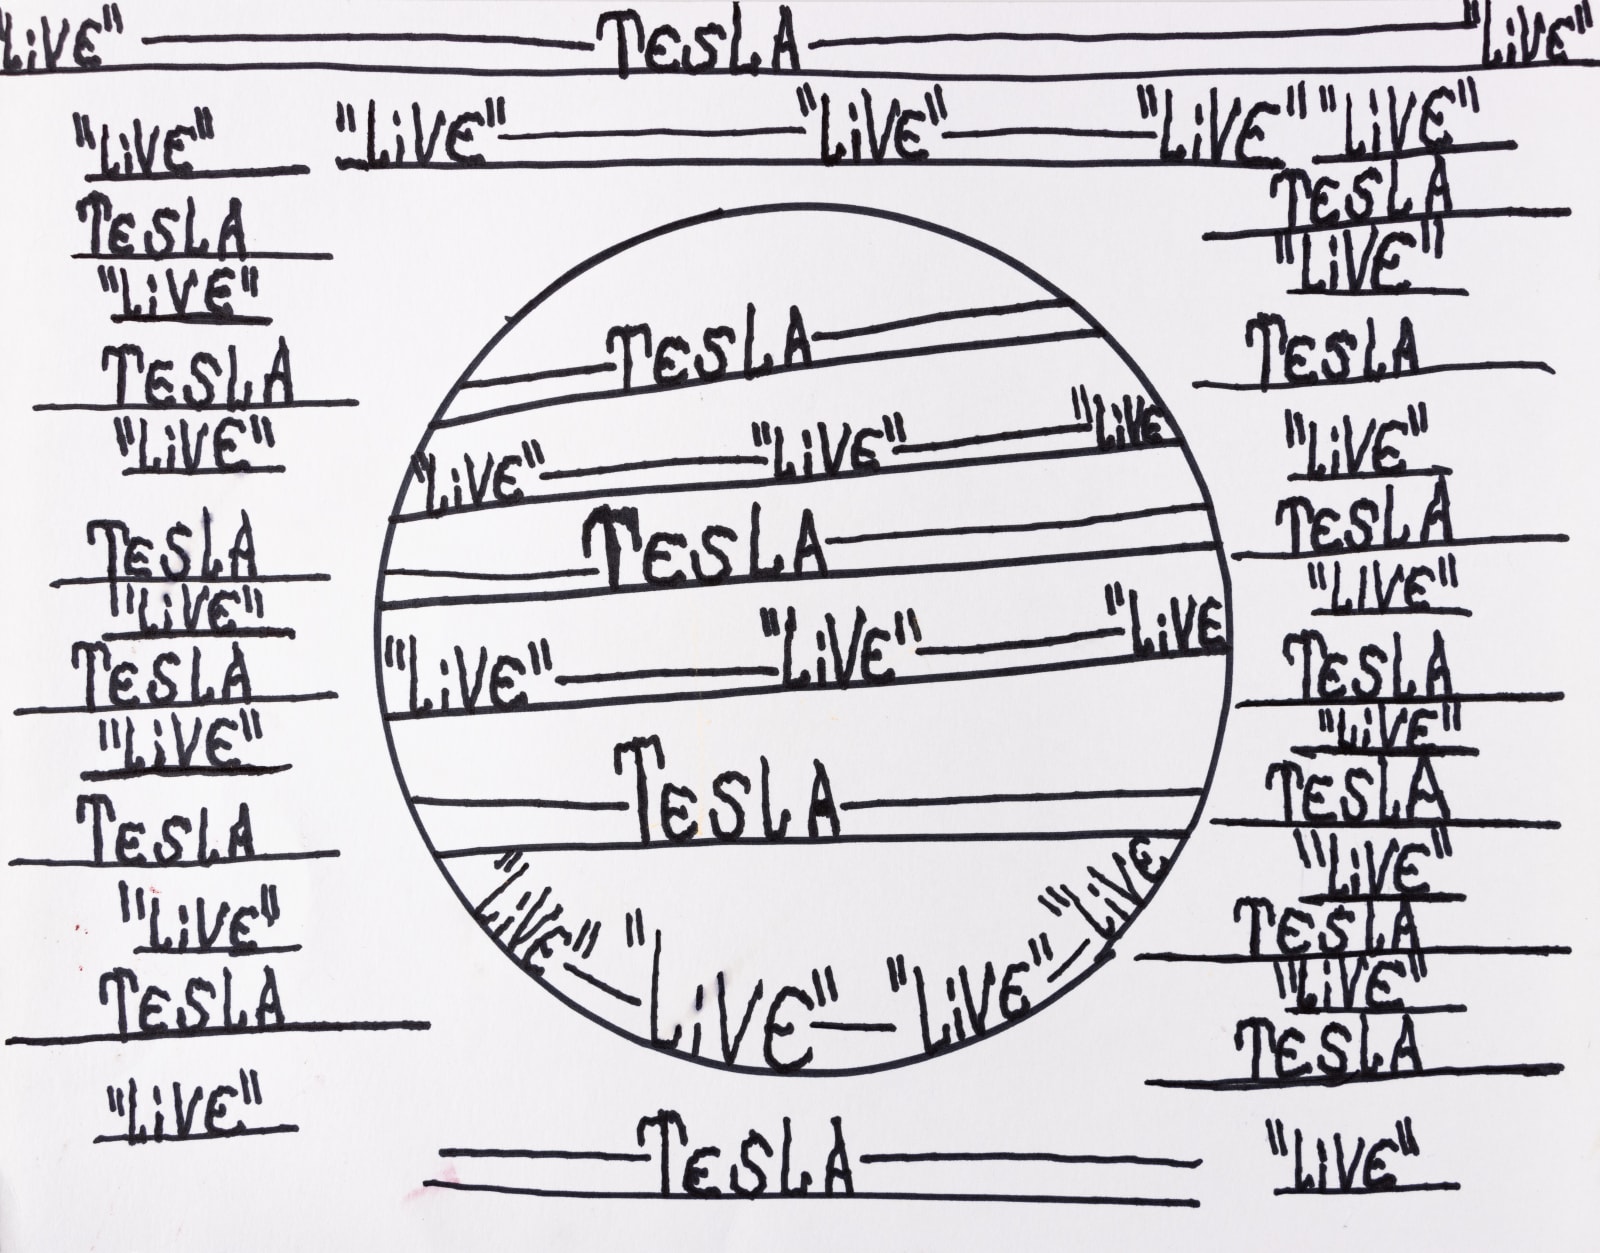 "LiVE" TESLA "LiVE"
"LiVE" "LiVE" "LiVE"
"LiVE"
TESLA
"LiVE"
TESLA
"LiVE"
TESLA
"LiVE"
TESLA
"LiVE"
TESLA
"LiVE"
TESLA
"LiVE"
TESLA
"LiVE" "LiVE" "LiVE
TESLA
"LiVE" "LiVE" "LiVE
TESLA
"LiVE" "LiVE" "LiVE" "LiVE
TESLA
"LiVE"
TESLA
"LiVE"
TESLA
"LiVE"
TESLA
"LIVE"
TESLA
"LiVE"
TESLA
"LiVE"
TESLA
"LiVE"
TESLA
"LiVE"